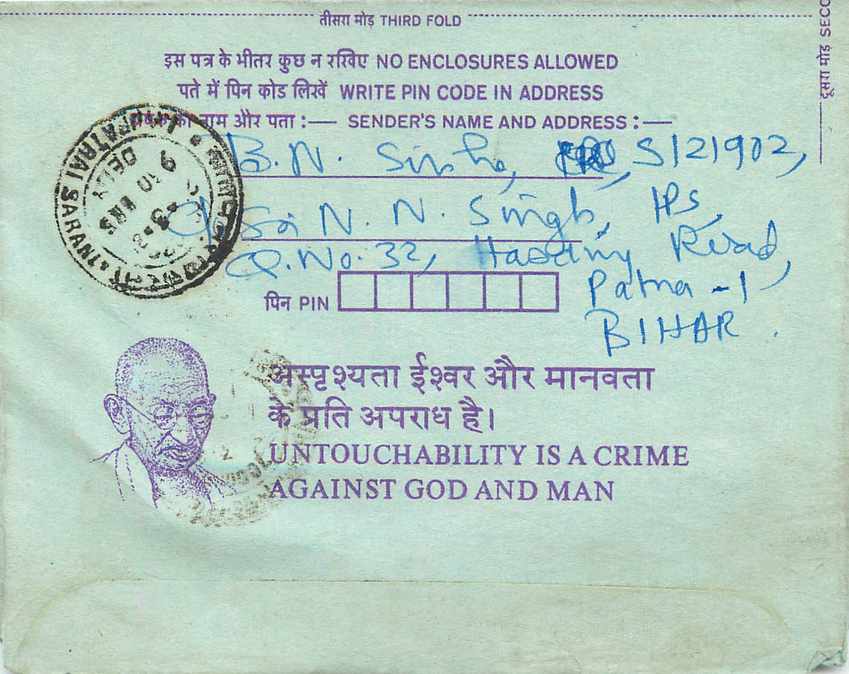 तीसरा मोड़ THIRD FOLD
इस पत्र के भीतर कुछ न रखिए NO ENCLOSURES ALLOWED
पते में पिन कोड लिखें WRITE PIN CODE IN ADDRESS
नाम और पता :— SENDER'S NAME AND ADDRESS :—
B. N. Sinha, S/21902,
N. N. Singh, IPS,
Q. No. 32, Road,
Patna - 1
पिन PIN
BIHAR.
अस्पृश्यता ईश्वर और मानवता
के प्रति अपराध है।
UNTOUCHABILITY IS A CRIME
AGAINST GOD AND MAN
दूसरा मोड़ SECO
LAJPATRAI SARANI